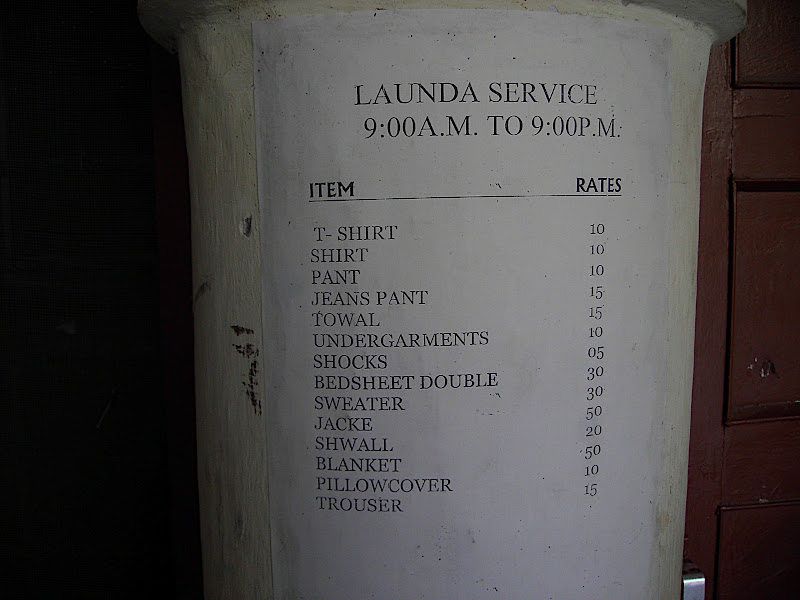 LAUNDA SERVICE
9:00A.M. TO 9:00P.M.
ITEM RATES
T- SHIRT 10
SHIRT 10
PANT 10
JEANS PANT 15
TOWAL 15
UNDERGARMENTS 10
SHOCKS 05
BEDSHEET DOUBLE 30
SWEATER 30
JACKE 50
SHWALL 20
BLANKET 50
PILLOWCOVER 10
TROUSER 15